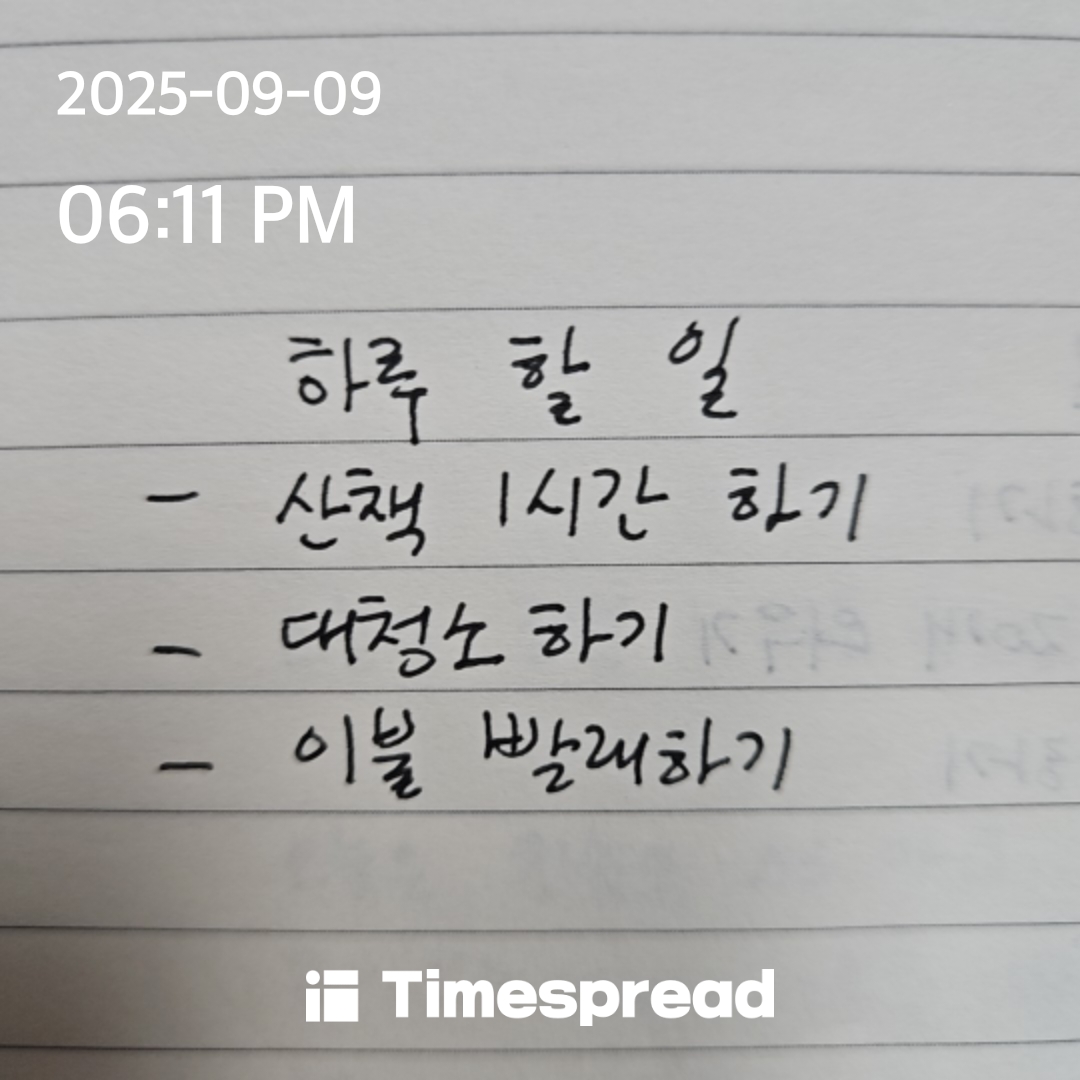 2025-09-09
06:11 PM
하루 할 일
- 산책 1시간 하기
- 대청소 하기
- 이불 빨래하기
Timespread